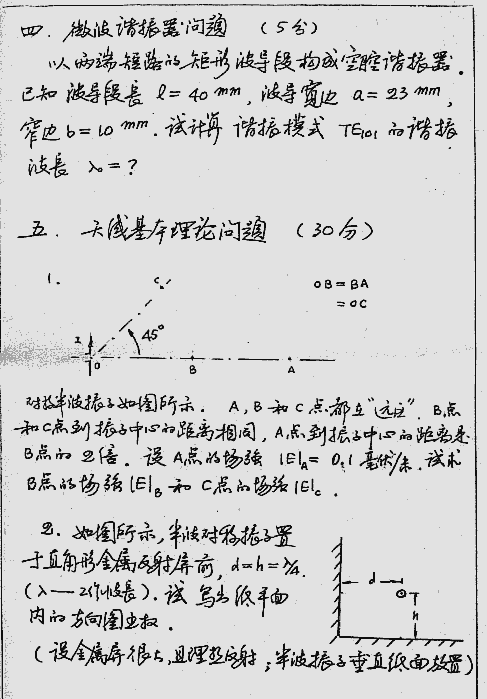 四. 微波谐振器问题 (5分)
以两端短路的矩形波导段构成空腔谐振器.
已知波导段长 l = 40 mm, 波导宽边 a = 23 mm,
窄边 b = 10 mm. 试计算 谐振模式 TE101 的谐振
波长 λ0 = ?
五. 天线基本理论问题 (30分)
1.
C
OB = BA
= OC
45°
I
O
B
A
对称半波振子如图所示. A, B 和 C 点都在"远区". B点
和C点到振子中心的距离相同, A点到振子中心的距离是
B点的 2倍. 设 A点的场强 |E|A = 0.1 毫伏/米. 试求
B点的场强 |E|B 和 C点的场强 |E|C.
2. 如图所示, 半波对称振子置
于直角形金属反射屏前, d = h = λ/4.
(λ — 工作波长). 试写出纸平面
内的方向图函数.
d
h
(设金属屏很大, 且理想反射; 半波振子垂直纸面放置)